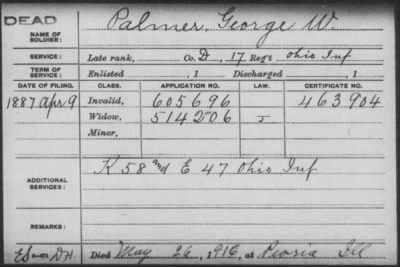 DEAD
NAME OF SOLDIER: Palmer, George W.
SERVICE: Late rank, Co. D, 17 Reg't Ohio Inf
TERM OF SERVICE: Enlisted , 1 Discharged , 1
DATE OF FILING. CLASS. APPLICATION NO. LAW. CERTIFICATE NO.
1887 Apr 9 Invalid, 605696 463904
Widow, 514206
Minor,
ADDITIONAL SERVICES: K 58 and E 47 Ohio Inf
REMARKS:
Died May 26, 1916, at Peoria Ill